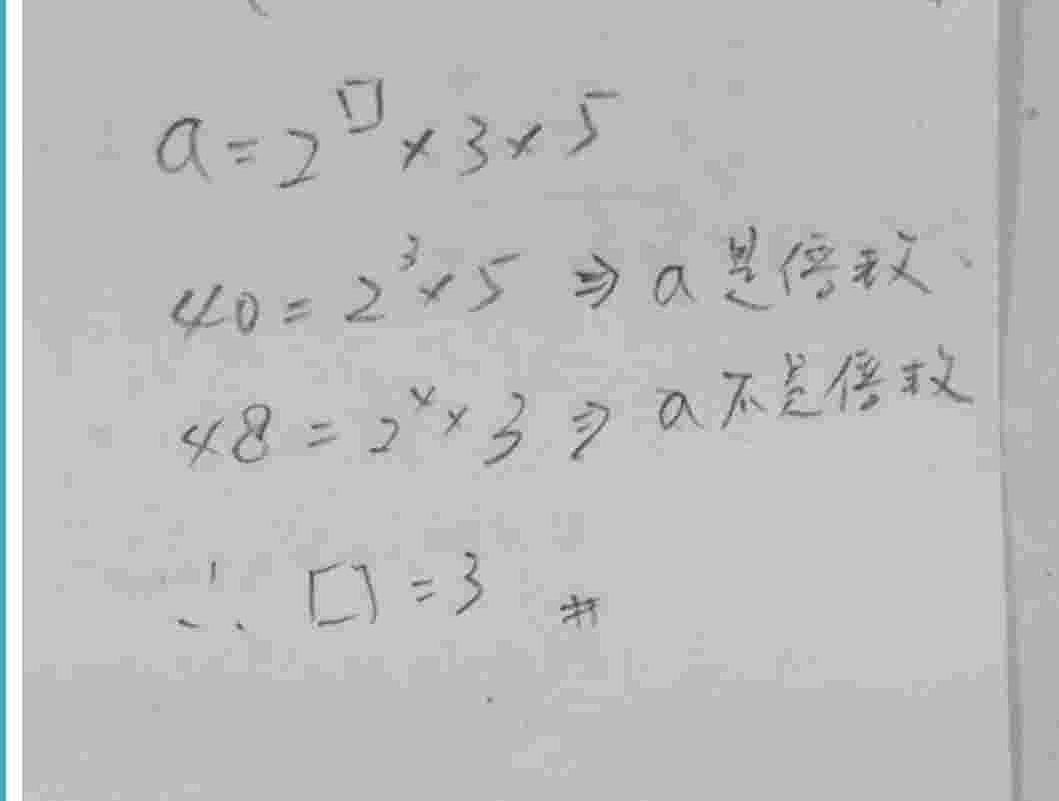 a=2^□×3×5
40=2³×5 ⇒ a是倍数
48=2⁴×3 ⇒ a不是倍数
∴ □=3 #